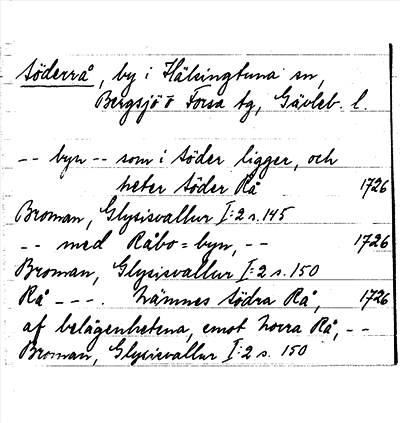 Söderrå, by i Hälsingtuna sn,
Bergsjö o Forsa tg, Gävleb. l.
-- byn -- som i söder ligger, och
heter söder Rå 1726
Broman, Glysisvallur I:2 s. 145
-- med Råbo=byn, -- 1726
Broman, Glysisvallur I:2 s. 150
Rå ---. nämnes södra Rå, 1726
af belägenhetena, emot norra Rå, --
Broman, Glysisvallur I:2 s. 150